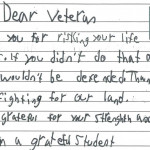 Dear Veteran
you for risking your life
r, if you didn't do that o
wouldn't be here Than
fighting for our land.
grateful for your strength
m a grateful student